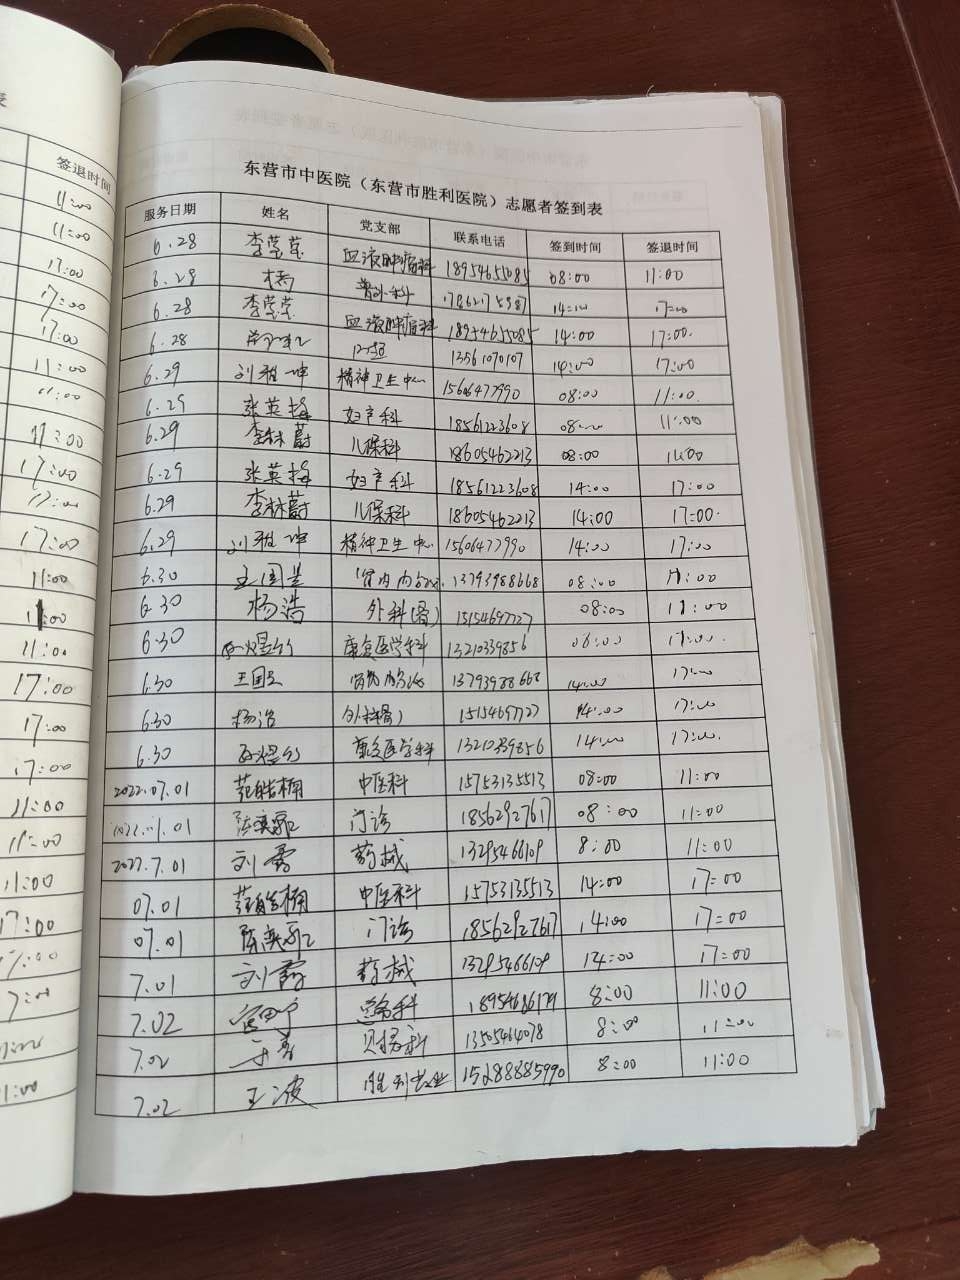 表
签退时间
11:00
11:00
17:00
17:00
17:00
11:00
11:00
11:00
17:00
17:00
17:00
11:00
11:00
11:00
17:00
17:00
17:00
11:00
11:00
11:00
17:00
17:00
11:00
东营市中医院（东营市胜利医院）志愿者签到表
服务日期 姓名 党支部 联系电话 签到时间 签退时间
6.28 李莹莹 血液肿瘤科 18954655085 08:00 11:00
6.28 普外科 14:00 17:00
6.28 李莹莹 血液肿瘤科 18954655085 14:00 17:00.
6.28 13561070107 14:00 17:00
6.29 刘雅坤 精神卫生中心 15606477990 08:00 11:00.
6.29 张英梅 妇产科 18561223608 08:00 11:00
6.29 李林蔚 儿保科 18605462213 08:00 11:00
6.29 张英梅 妇产科 18561223608 14:00 17:00
6.29 李林蔚 儿保科 18605462213 14:00 17:00.
6.29 刘雅坤 精神卫生中心 15606477990 14:00 17:00
6.30 王国 13793988668 08:00 11:00
6.30 杨浩 外科(骨) 15154697727 08:00 11:00
6.30 康复医学科 13210339856 08:00 11:00.
6.30 王国 13793988668 14:00 17:00
6.30 杨浩 外科(骨) 15154697727 14:00 17:00
6.30 康复医学科 13210339856 14:00 17:00.
2022.07.01 范皓楠 中医科 15753135513 08:00 11:00
2022.07.01 陈奕 门诊 18562927617 08:00 11:00
2022.7.01 刘霞 药械 13295466109 8:00 11:00
07.01 范皓楠 中医科 15753135513 14:00 17:00
07.01 陈奕 门诊 18562927617 14:00 17:00
7.01 刘霞 药械 13295466109 14:00 17:00
7.02 总务科 8:00 11:00
7.02 财务科 13505464078 8:00 11:00
7.02 王波 胜利 15288885990 8:00 11:00